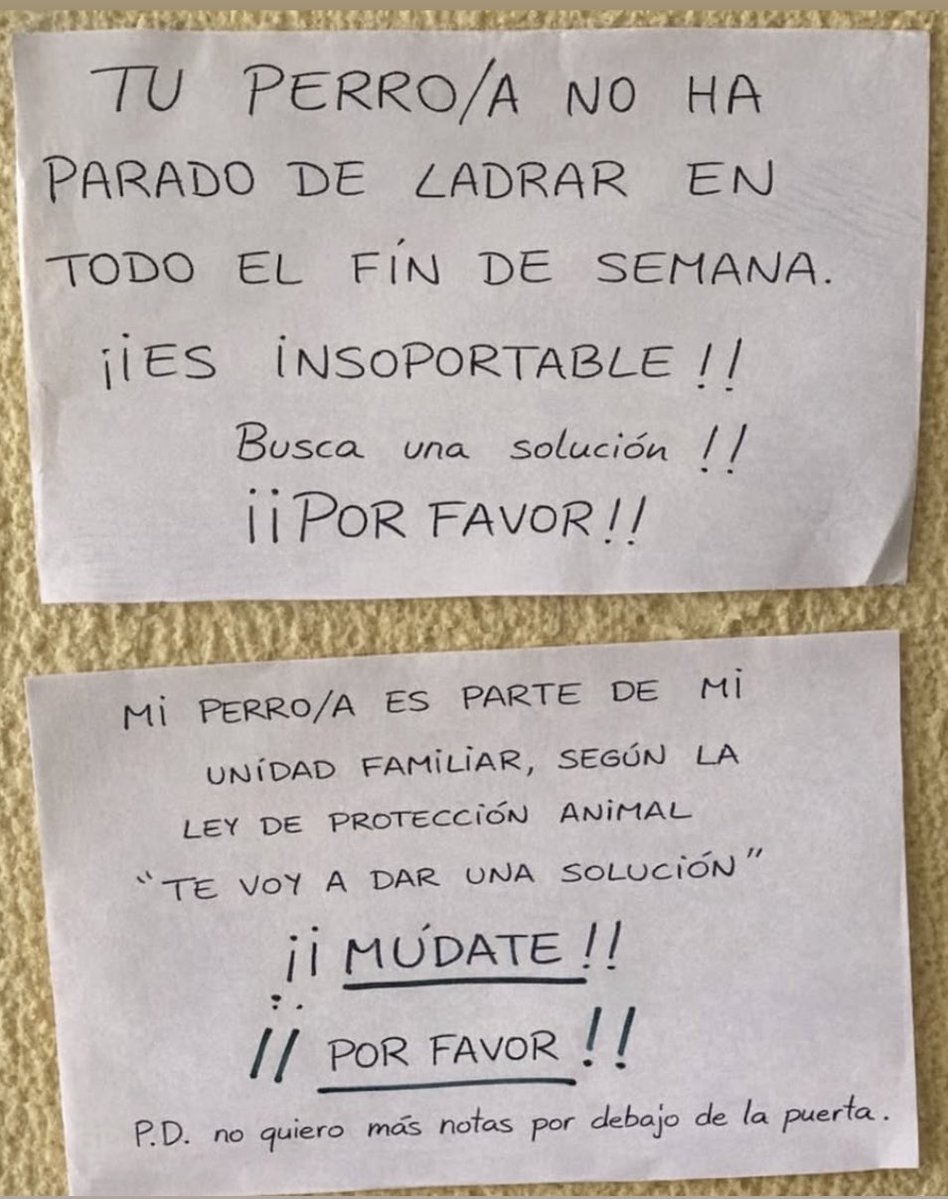 TU PERRO/A NO HA
PARADO DE LADRAR EN
TODO EL FÍN DE SEMANA.
¡¡ES INSOPORTABLE!!
Busca una solución!!
¡¡POR FAVOR!!
Mi PERRO/A ES PARTE DE Mi
UNIDAD FAMILIAR, SEGÚN LA
LEY DE PROTECCIÓN ANIMAL
"TE VOY A DAR UNA SOLUCIÓN"
¡¡MÚDATE!!
¡¡POR FAVOR!!
P.D. no quiero más notas por debajo de la puerta.